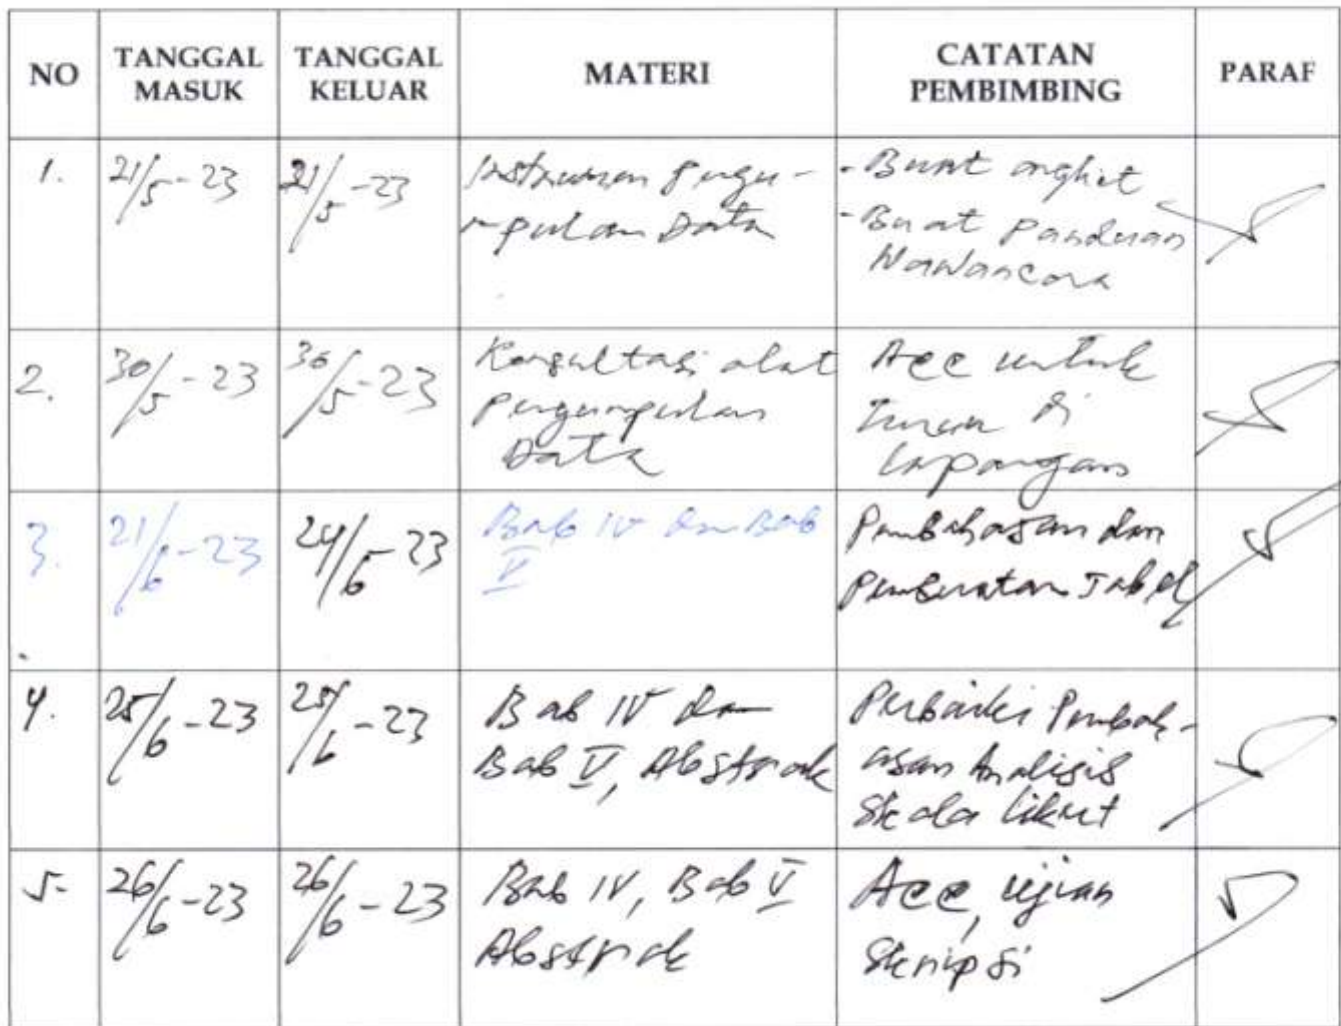 NO TANGGAL MASUK TANGGAL KELUAR MATERI CATATAN PEMBIMBING PARAF
1. 21/5-23 21/5-23 Instrumen pengu-
mpulan Data
- Buat angket
- Buat Panduan
Wawancara
2. 30/5-23 30/5-23 Konsultasi alat
pengumpulan
Data
Acc untuk
turun di
lapangan
3. 21/6-23 24/6-23 Bab IV dan Bab
V
Pembahasan dan
Pembuatan Tabel
4. 25/6-23 25/6-23 Bab IV dan
Bab V, Abstrak
Perbaiki Pembah-
asan Analisis
Skala Likert
5. 26/6-23 26/6-23 Bab IV, Bab V
Abstrak
Acc, ujian
Skripsi